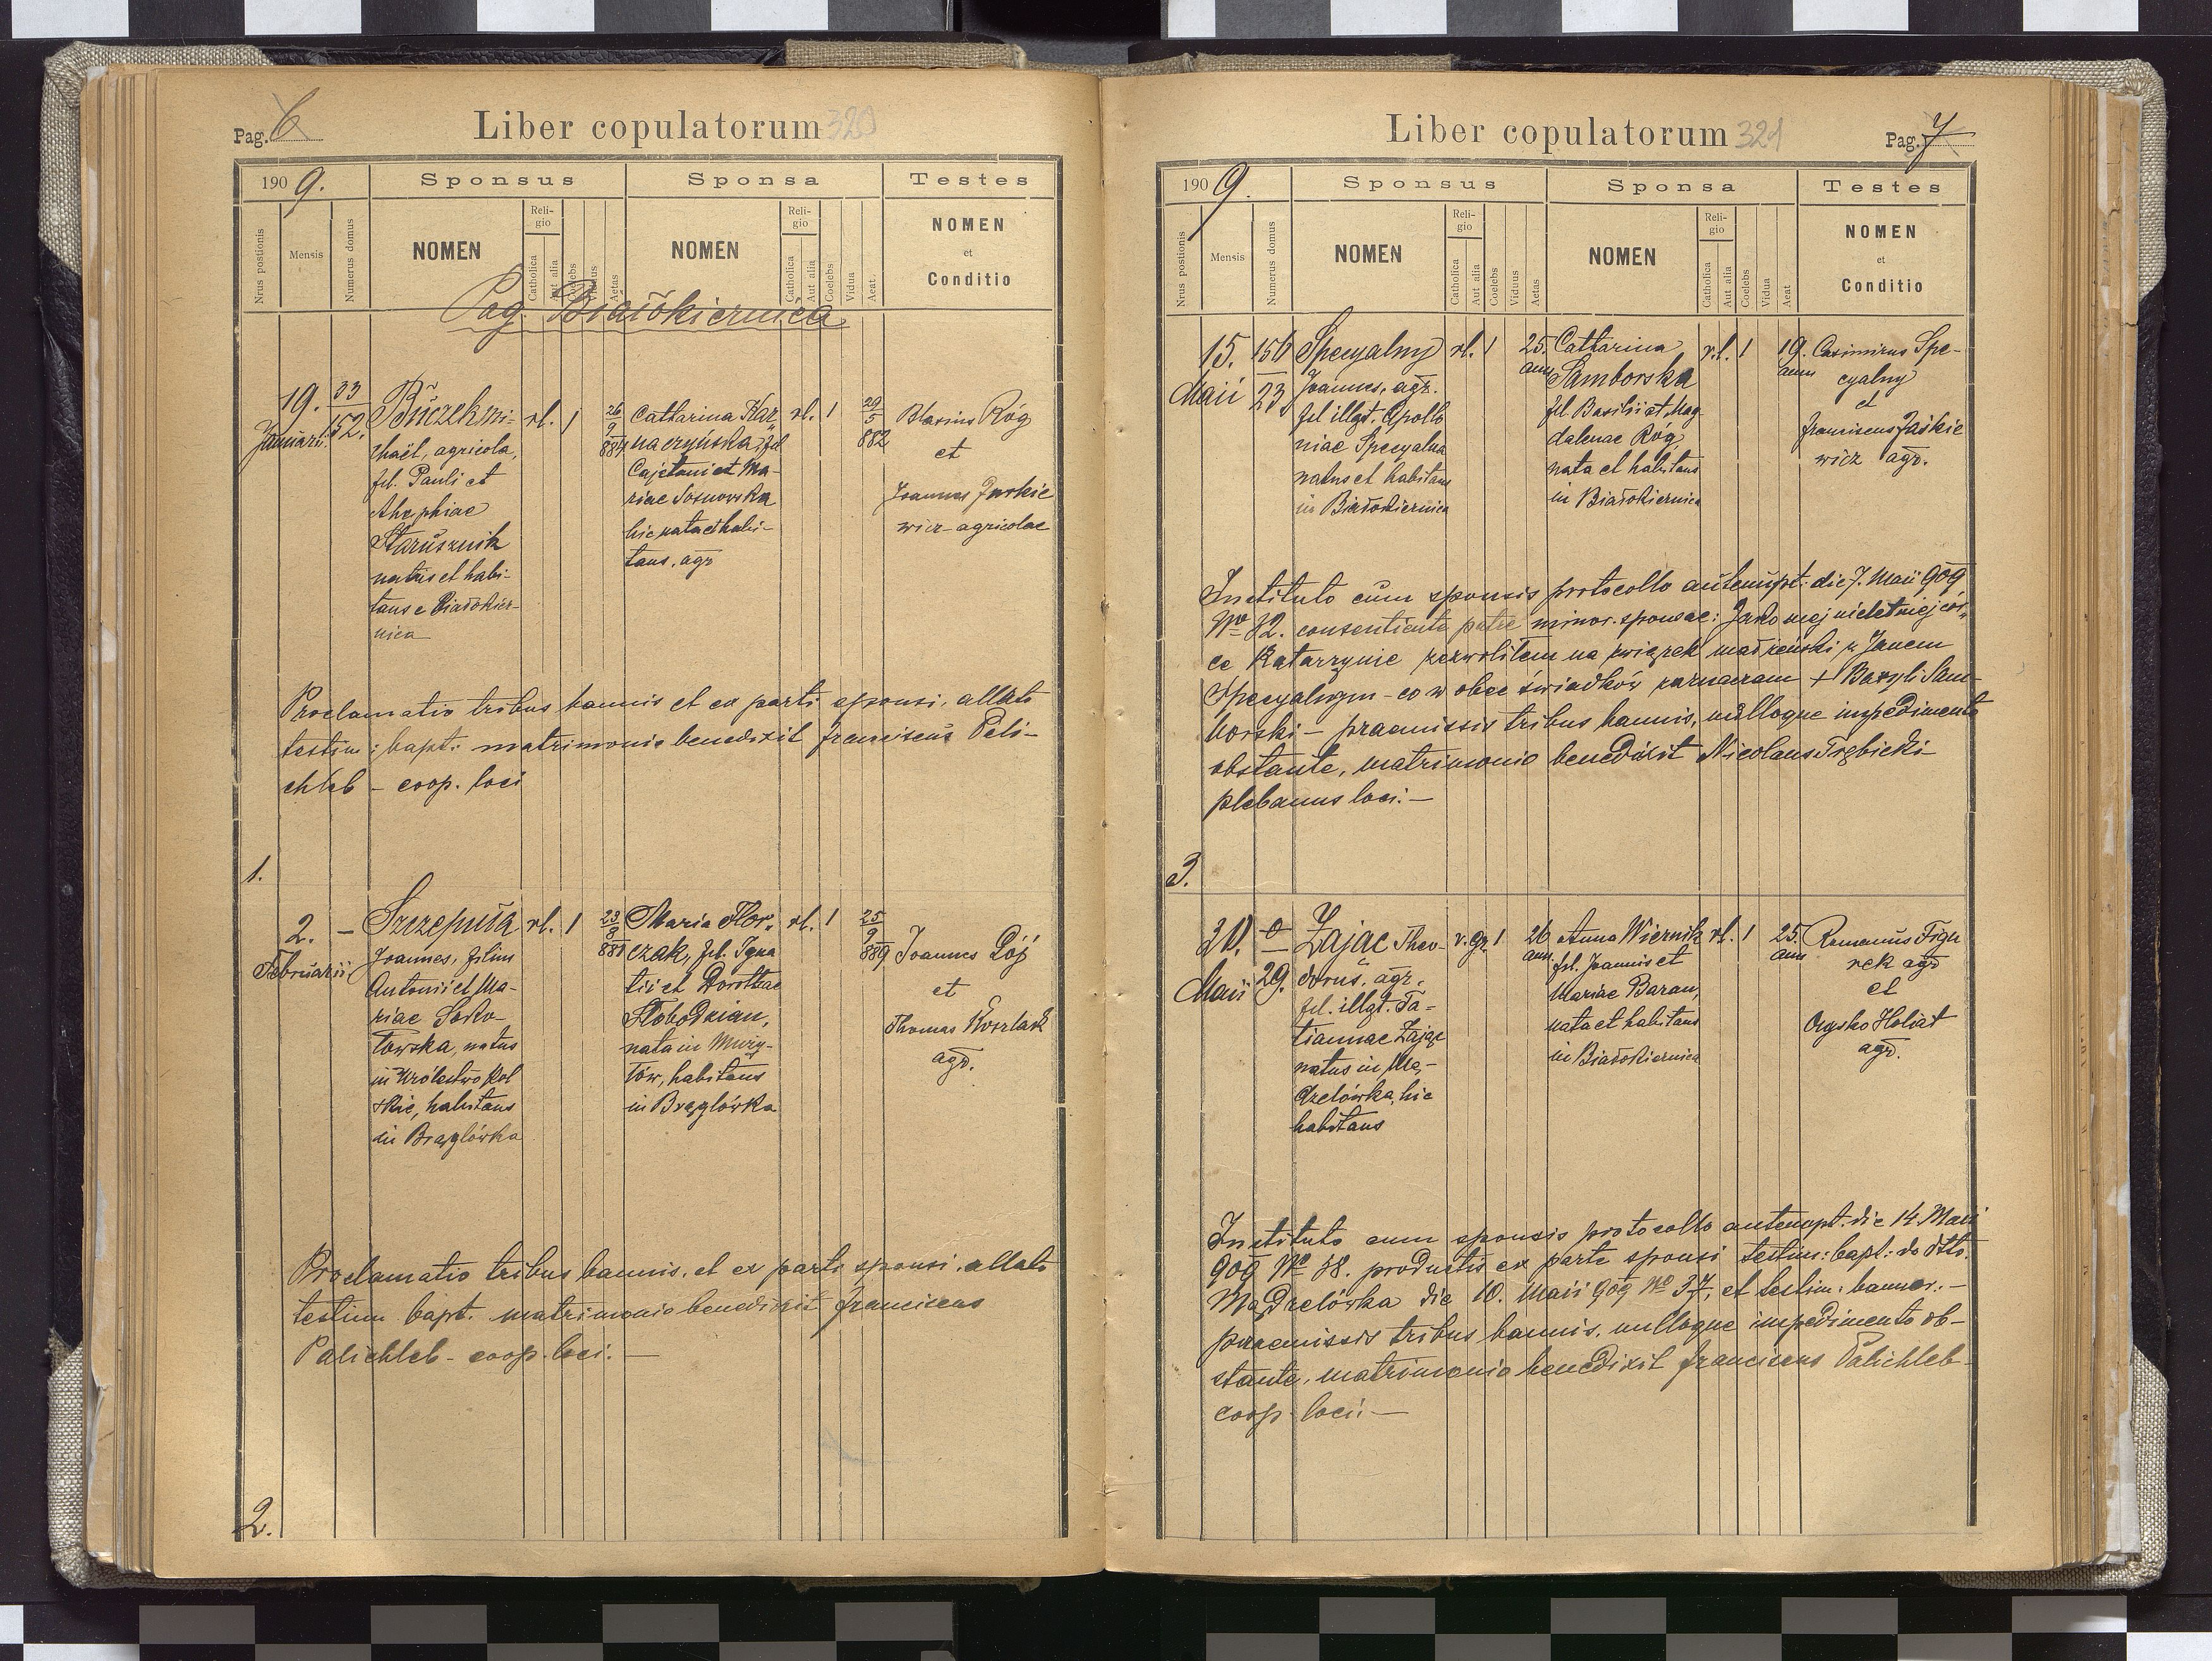 Pag. 6
Liber copulatorum 320
190 9.
Sponsus
Sponsa
Testes
Nrus postionis
Mensis
Numerus domus
NOMEN
Religio
Catholica
Aut alia
Coelebs
Viduus
Aetas
NOMEN
Religio
Catholica
Aut alia
Coelebs
Vidua
Aeat.
NOMEN
et
Conditio
Pag Białokiernica
19.
Januarii
33
152.
Buczek Mi-
chaël, agricola,
fil. Pauli et
Starusznik
natus et habi-
tans e Białokier-
nica
rl. 1
26
9
884
Catharina Kar
naczyńska, fil
Cajetani et Ma-
riae Sosnowska
hic nata et habi-
tans, agr
rl. 1
29
5
882
Blasius Róg
et
Joannes Jaśkie
wicz - agricolae
Proclamatio tribus bannis et ex parti sponsi, allato
testim: bapt: matrimonio benedixit Franciscus Pali-
chleb - coop. loci
1.
2.
Februarii
-
Szczepuła
Joannes, filius
Antonii et Ma-
riae Soko-
łowska, natus
in Królestwo Pol
skie, habitans
in Brzglówka
rl. 1
23
8
881
Maria Flor-
czak, fil. Igna
tii et Dorotheae
Słobodzian,
nata in Muży-
łów, habitans
in Brzglówka
rl. 1
25
9
889
Joannes Łój
et
Thomas Kozlak
agr.
Proclamatio tribus bannis, et ex parte sponsi, allato
testim bapt. matrimonio benedixit Franciscus
Palichleb - coop. loci. -
2.
Liber copulatorum 321
Pag. 7
190 9.
Sponsus
Sponsa
Testes
Nrus postionis
Mensis
Numerus domus
NOMEN
Religio
Catholica
Aut alia
Coelebs
Viduus
Aetas
NOMEN
Religio
Catholica
Aut alia
Coelebs
Vidua
Aeat
NOMEN
et
Conditio
15.
Maii
156
23
Specyalny
Joannes, agr.
fil illgt. Apollo
niae Specyalna
natus et habitans
in Białokiernica
rl. 1
25.
ann
Catharina
Samborska
fil Basilii et Mag
dalenae Róg,
nata et habitans
in Białokiernica
r.l. 1
19.
ann
Casimirus Spe-
cyalny
et
Franciscus Jaśkie
wicz agr.
Instituto cum sponsis protocollo antenupt: die 7. Maii 909
No 32. consentiente patre minor. sponsae: Jako mej nieletniej cór-
ce Katarzynie zezwoliłem na związek małżeński z Janem
Specyalnym - co w obec świadków zeznaczam + Bazyli Sam-
borski - praemissis tribus bannis, nulloque impedimento
obstante, matrimonio benedixit Nicolaus Trębicki
plebanus loci. -
3.
30.
Maii
0
29.
Zając Theo-
dorus, agr.
fil. illgt. Ta-
tiannae Zając
natus in Mą-
drelówka, hic
habitans
r. gr. 1
26
ann.
Anna Wiernik
fil. Joannis et
Mariae Baran,
nata et habitans
in Białokiernica
rl. 1
25.
ann
Romanus Figu
rek agr
et
Onyśko Holiat
agr.
Instituto cum sponsis protocollo antenupt. die 14. Maii
909 No 38. productis ex parte sponsi testim: bapt: do dtto.
Mądrelówka die 10. Maii 909 No 37, et testim: bannor: -
praemissis tribus bannis, nulloque impedimento ob-
stante, matrimonio benedixit Franciscus Palichleb -
coop. loci: -